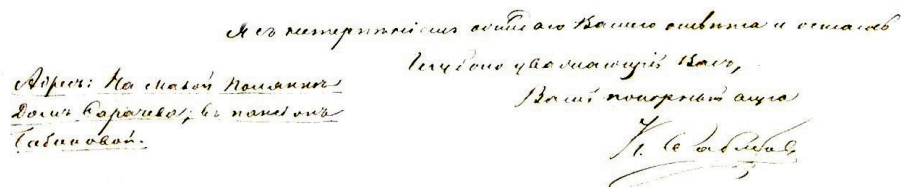 Я съ нетерпѣніемъ ожидаю Вашего отвѣта и остаюсь
Глубоко уважающій Васъ,
Вашъ покорный слуга
Адресъ: На Малой Полянкѣ
Домъ; въ пансіонѣ